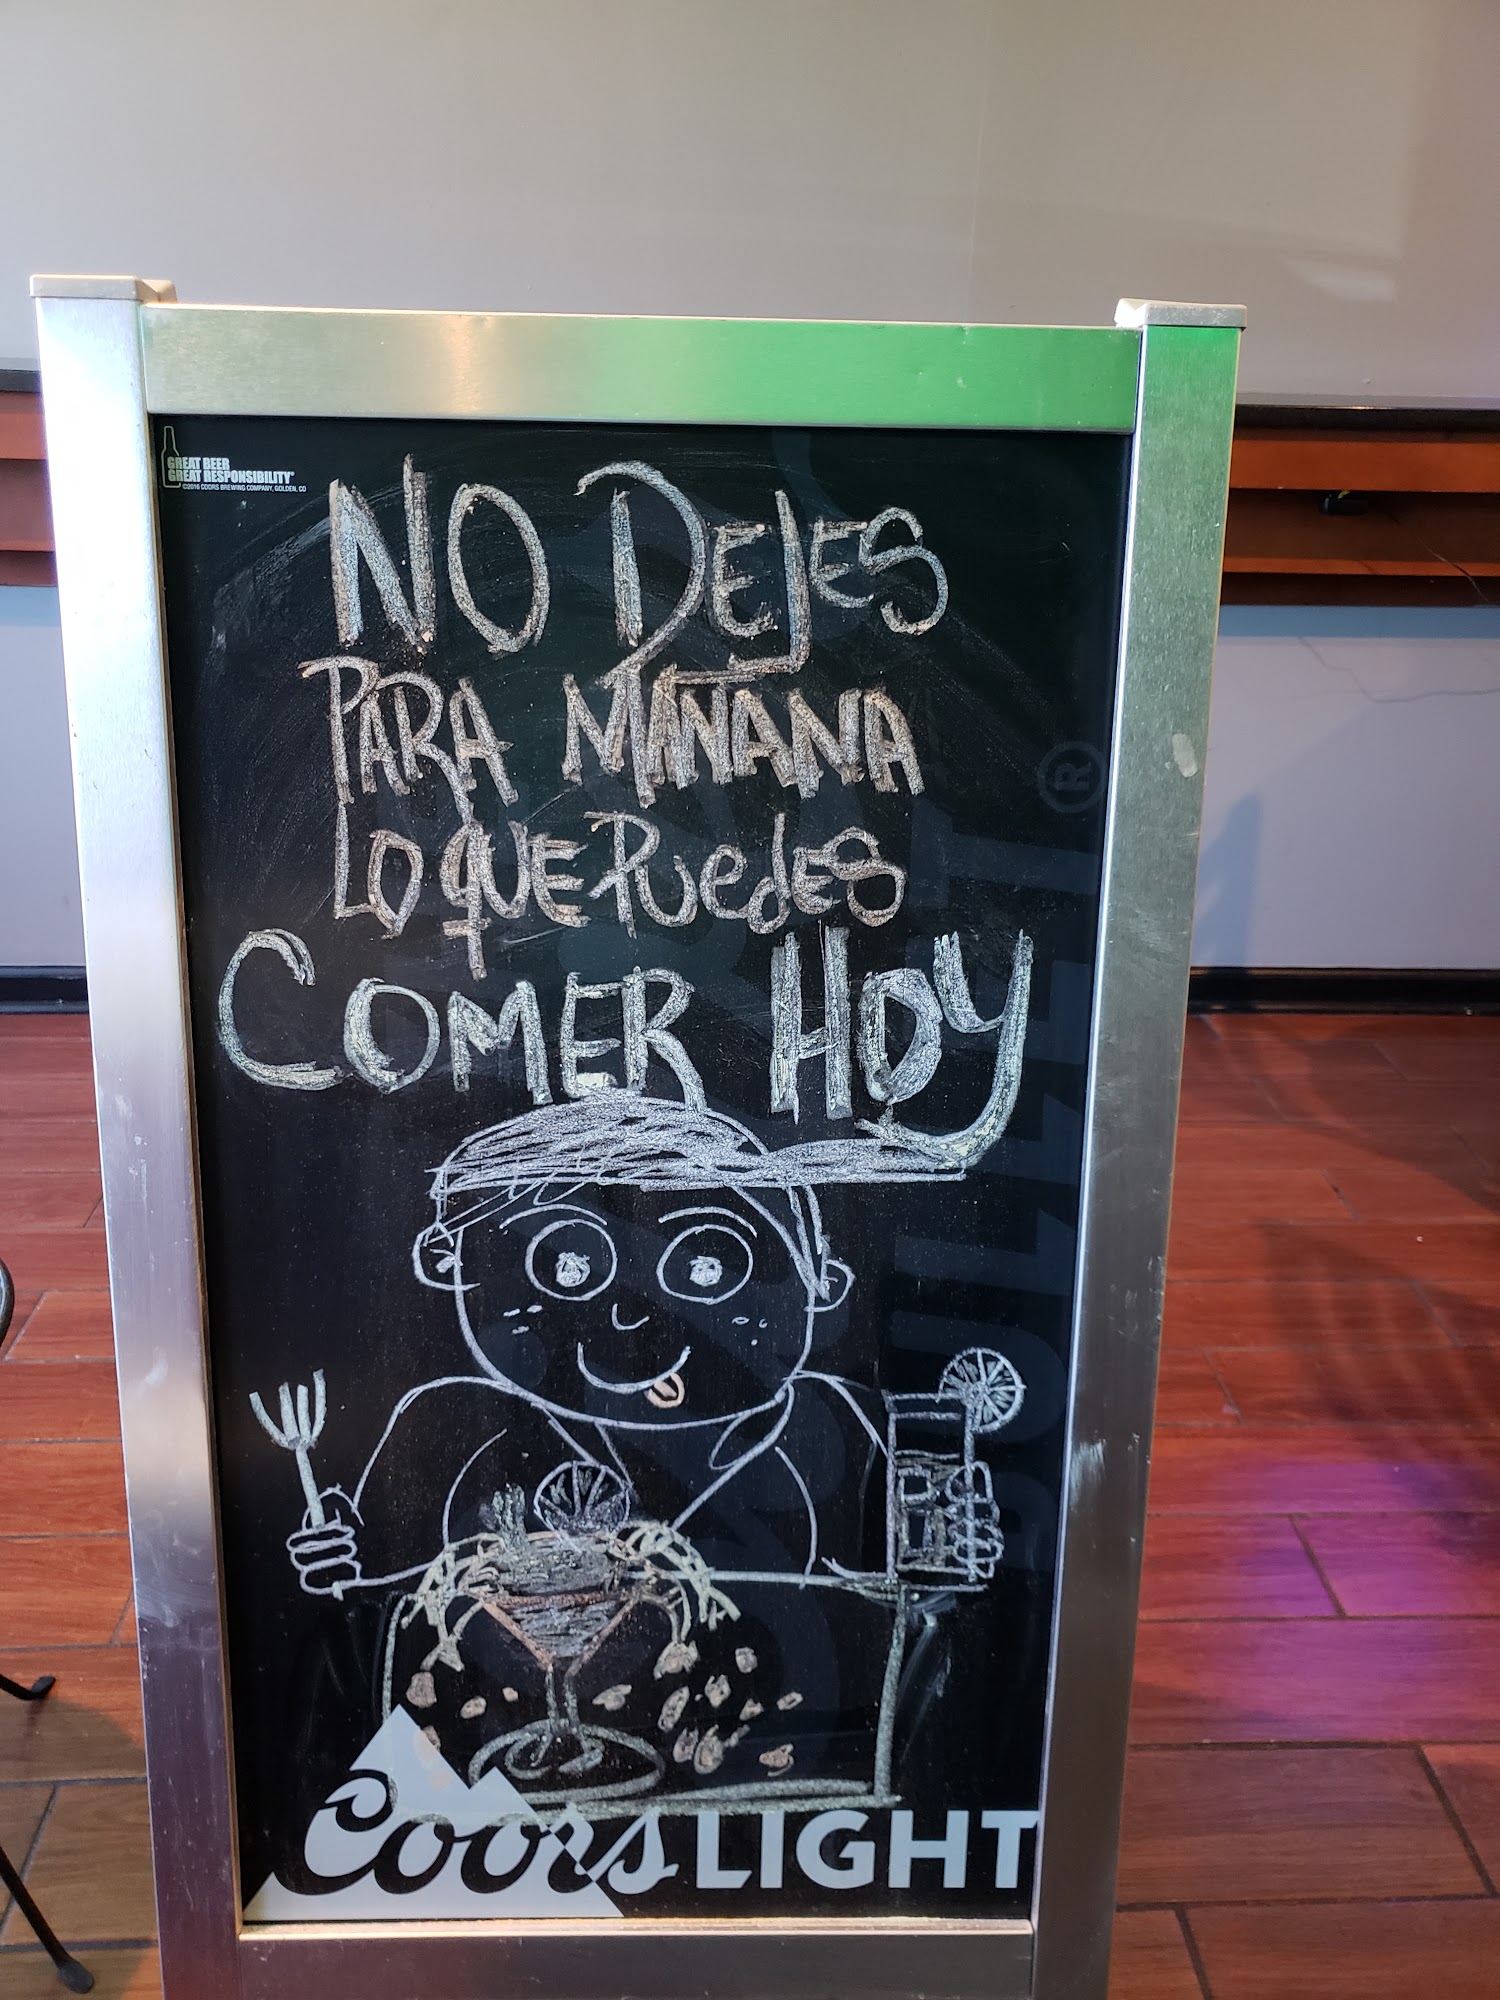 GREAT BEER
GREAT RESPONSIBILITY®
©2016 COORS BREWING COMPANY, GOLDEN, CO
NO DEJES
PARA MAÑANA
LO QUE PUEdES
COMER HOY
Coors LIGHT